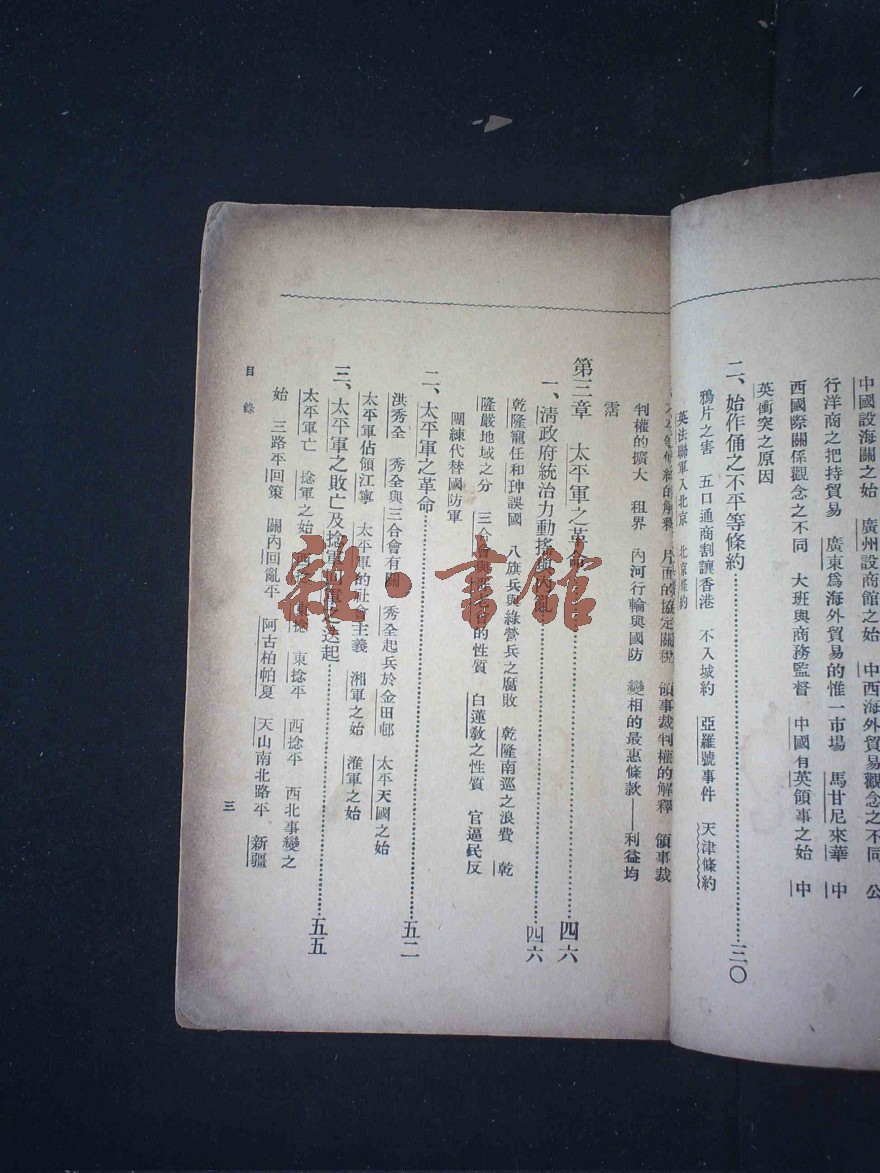 中國設海關之始　廣州設商館之始　中西海外貿易觀念之不同　公
行洋商之把持貿易　廣東爲海外貿易的惟一市場　馬甘尼來華　中
西國際關係觀念之不同　大班與商務監督　中國有英領事之始　中
英衝突之原因
二、始作俑之不平等條約…………三〇
鴉片之害　五口通商割讓香港　不入城約　亞羅號事件　天津條約
英法聯軍入北京　北京條約
片面的協定關稅　領事裁判權的解釋　領事裁
判權的擴大　租界　內河行輪與國防　變相的最惠條款——利益均
霑
第三章　太平軍之革命…………四六
一、清政府統治力動搖與內亂…………四六
乾隆寵任和珅誤國　八旗兵與綠營兵之腐敗　乾隆南巡之浪費　乾
隆嚴地域之分　三合會與的性質　白蓮敎之性質　官逼民反
團練代替國防軍
二、太平軍之革命…………五二
洪秀全　秀全與三合會有關　秀全起兵於金田邨　太平天國之始
太平軍佔領江寧　太平軍的社會主義　湘軍之始　淮軍之始
三、太平軍之敗亡及捻軍回軍之迭起…………五五
太平軍亡　捻軍之始　東捻平　西捻平　西北事變之
始　三路平回策　關內回亂平　阿古柏帕夏　天山南北路平　新疆
目錄
三
雜·書館